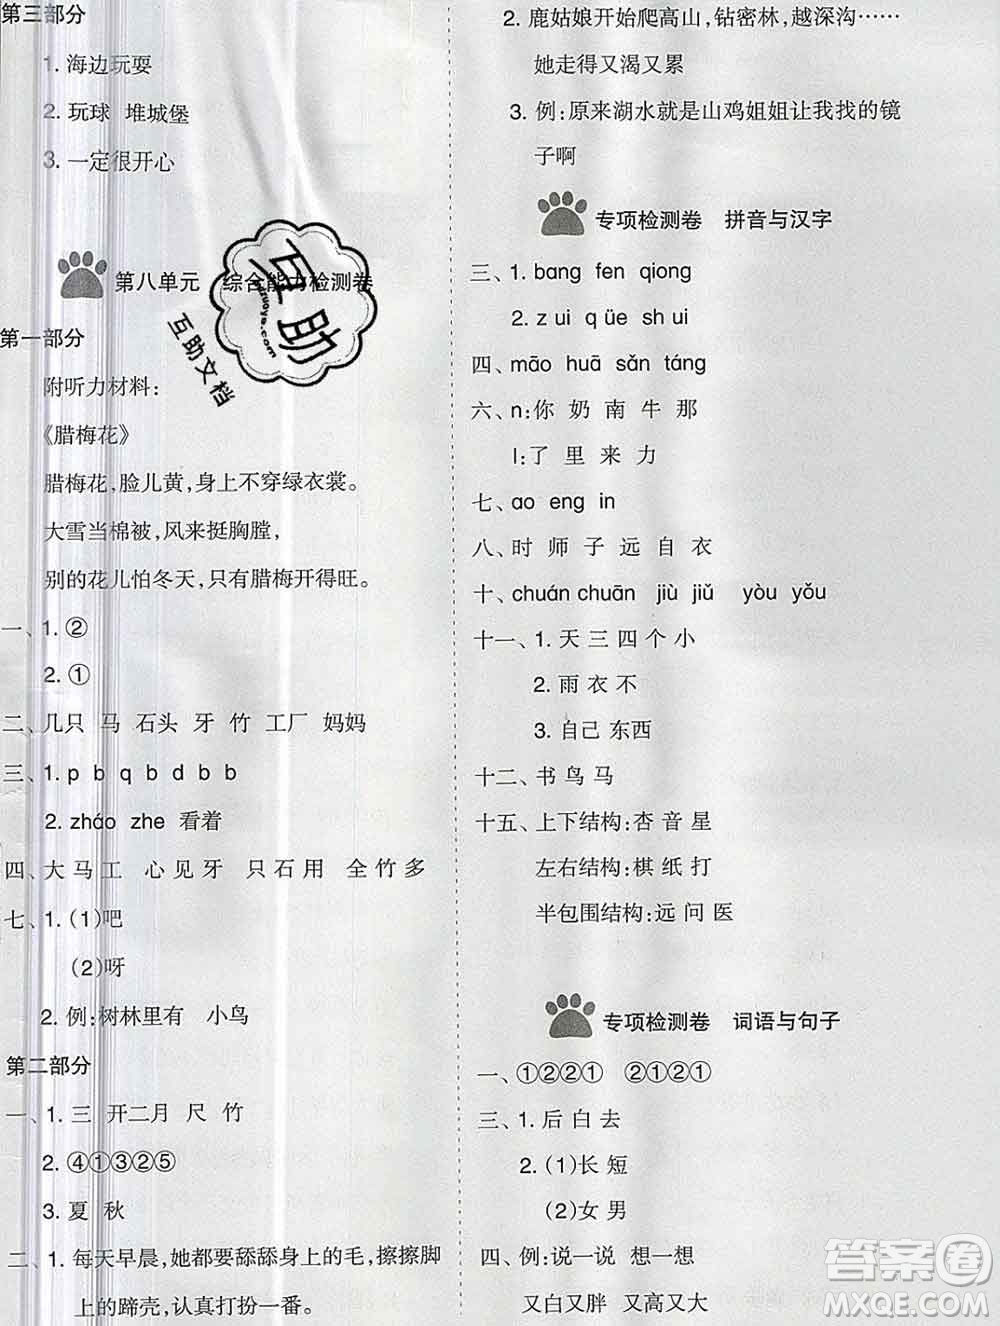 第三部分
1. 海边玩耍
2. 玩球 堆城堡
3. 一定很开心
第八单元 综合能力检测卷
第一部分
附听力材料：
《腊梅花》
腊梅花,脸儿黄,身上不穿绿衣裳。
大雪当棉被,风来挺胸膛，
别的花儿怕冬天,只有腊梅开得旺。
一、1. ②
2. ①
二、几只 马 石头 牙 竹 工厂 妈妈
三、1. p b q b d b b
2. zháo zhe 看着
四、大 马 工 心 见 牙 只 石 用 全 竹 多
七、1. (1)吧
(2)呀
2. 例:树林里有 小鸟
第二部分
一、1. 三 开 二 月 尺 竹
2. ④①③②⑤
3. 夏 秋
二、1. 每天早晨,她都要舔舔身上的毛,擦擦脚
上的蹄壳,认真打扮一番。
2. 鹿姑娘开始爬高山,钻密林,越深沟……
她走得又渴又累
3. 例:原来湖水就是山鸡姐姐让我找的镜
子啊
专项检测卷 拼音与汉字
三、1. bang fen qiong
2. z ui q üe sh ui
四、māo huā sǎn táng
六、n:你 奶 南 牛 那
l:了 里 来 力
七、ao eng in
八、时 师 子 远 自 衣
十、chuán chuān jiù jiǔ yòu yǒu
十一、1. 天 三 四 个 小
2. 雨 衣 不
3. 自己 东西
十二、书 鸟 马
十五、上下结构:杏 音 星
左右结构:棋 纸 打
半包围结构:远 问 医
专项检测卷 词语与句子
一、①②②① ②①②①
三、1. 后 白 去
2. (1)长 短
(2)女 男
四、例:说一说 想一想
又白又胖 又高又大
互助
互助文档
答案圈
MXQE.COM